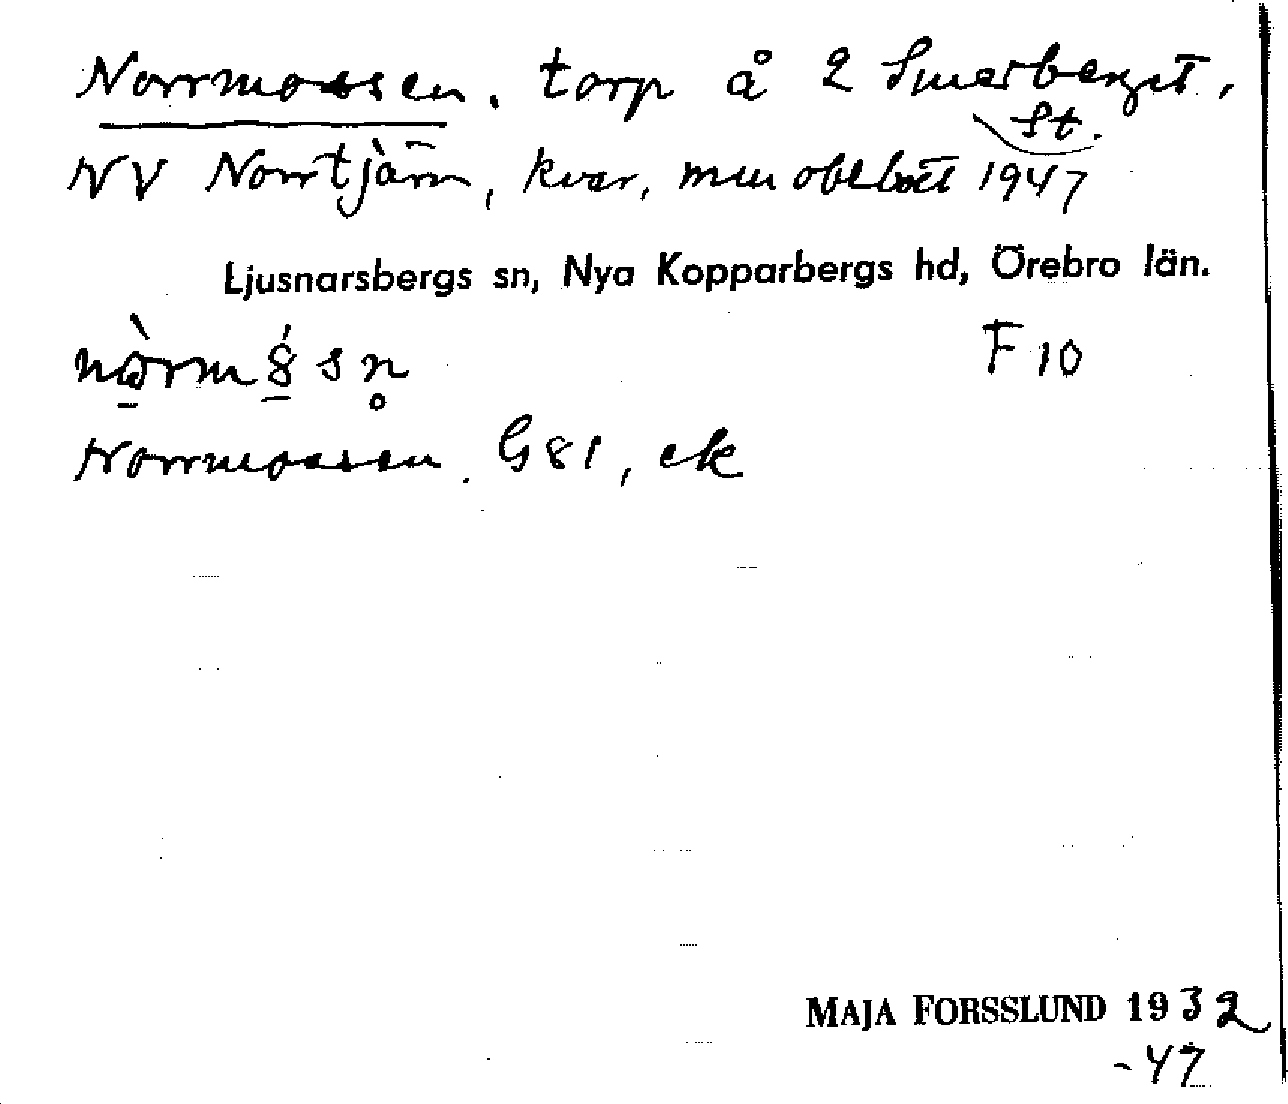 Norrmossen, torp å 2 Smedberget,
st.
NV Norrtjärn, kvar, men obebott 1947
Ljusnarsbergs sn, Nya Kopparbergs hd, Örebro län.
F 10
Norrmossen. G81, ek
MAJA FORSSLUND 1932
-47